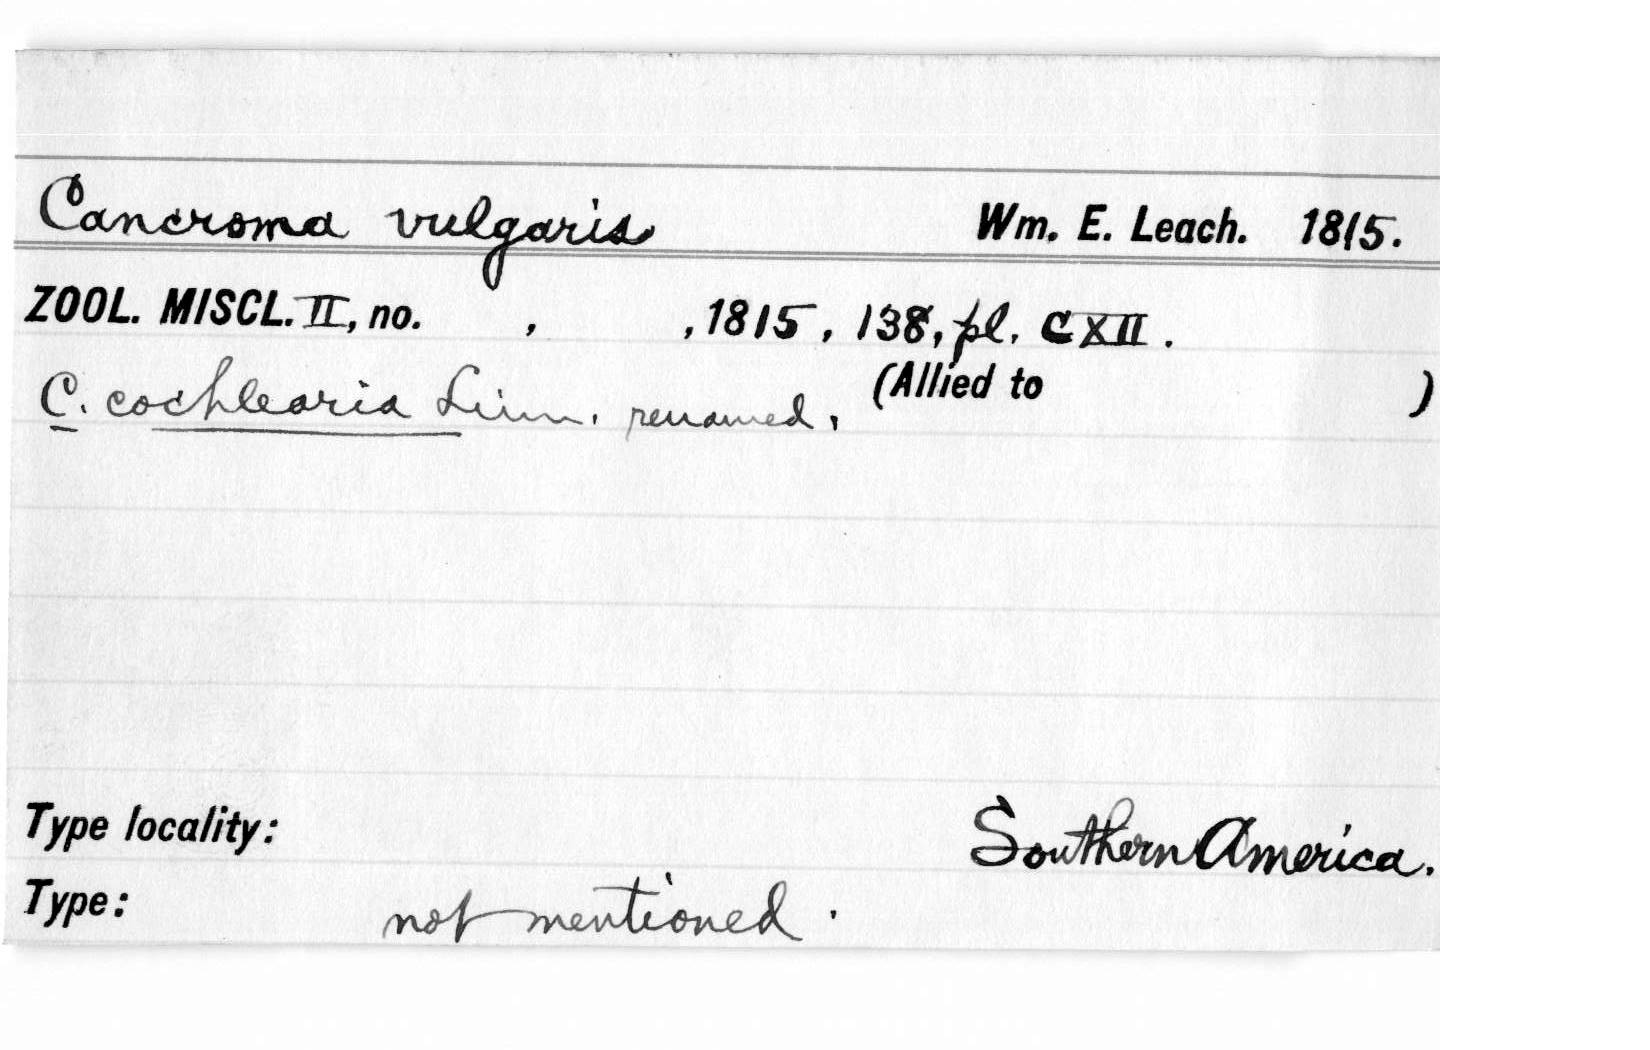 Cancroma vulgaris Wm. E. Leach. 1815.
ZOOL. MISCL. II, no. , , 1815, 138, pl. CXII.
C. cochlearia Linn. renamed, (Allied to )
Type locality: Southern America.
Type: not mentioned.